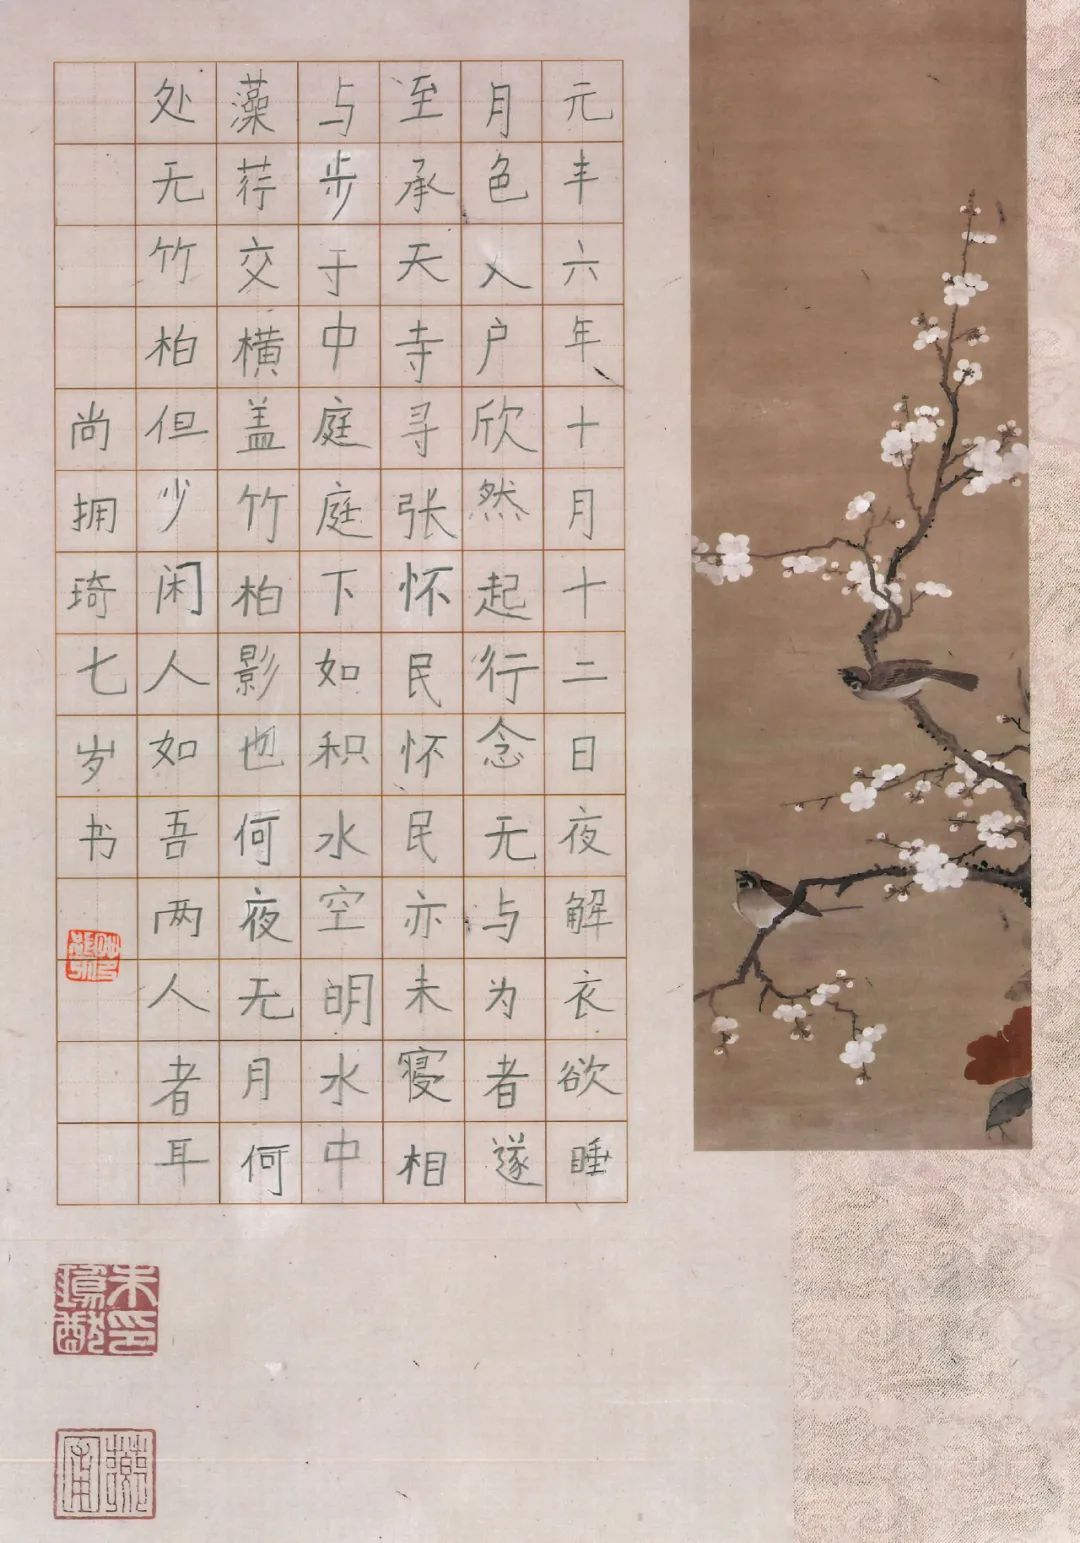 元丰六年十月十二日夜解衣欲睡
月色入户欣然起行念无与为者遂
至承天寺寻张怀民怀民亦未寝相
与步于中庭庭下如积水空明水中
藻荇交横盖竹柏影也何夜无月何
处无竹柏但少闲人如吾两人者耳
尚拥琦七岁书